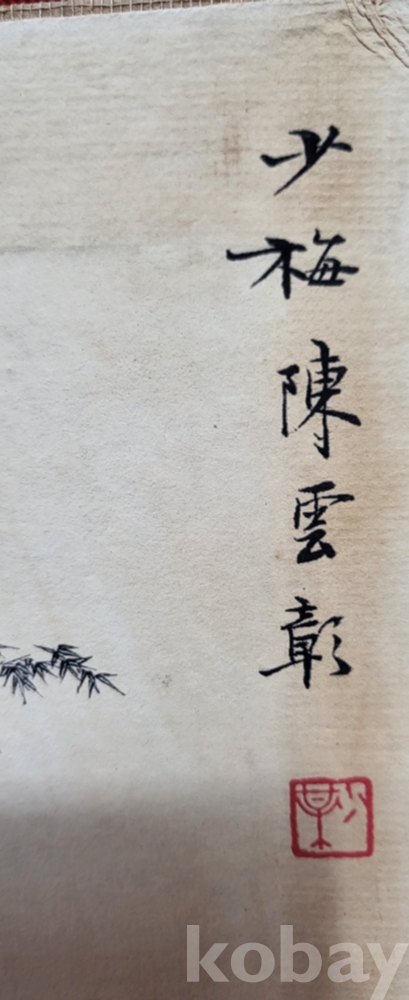 少梅陳雲彰
少某
kobay